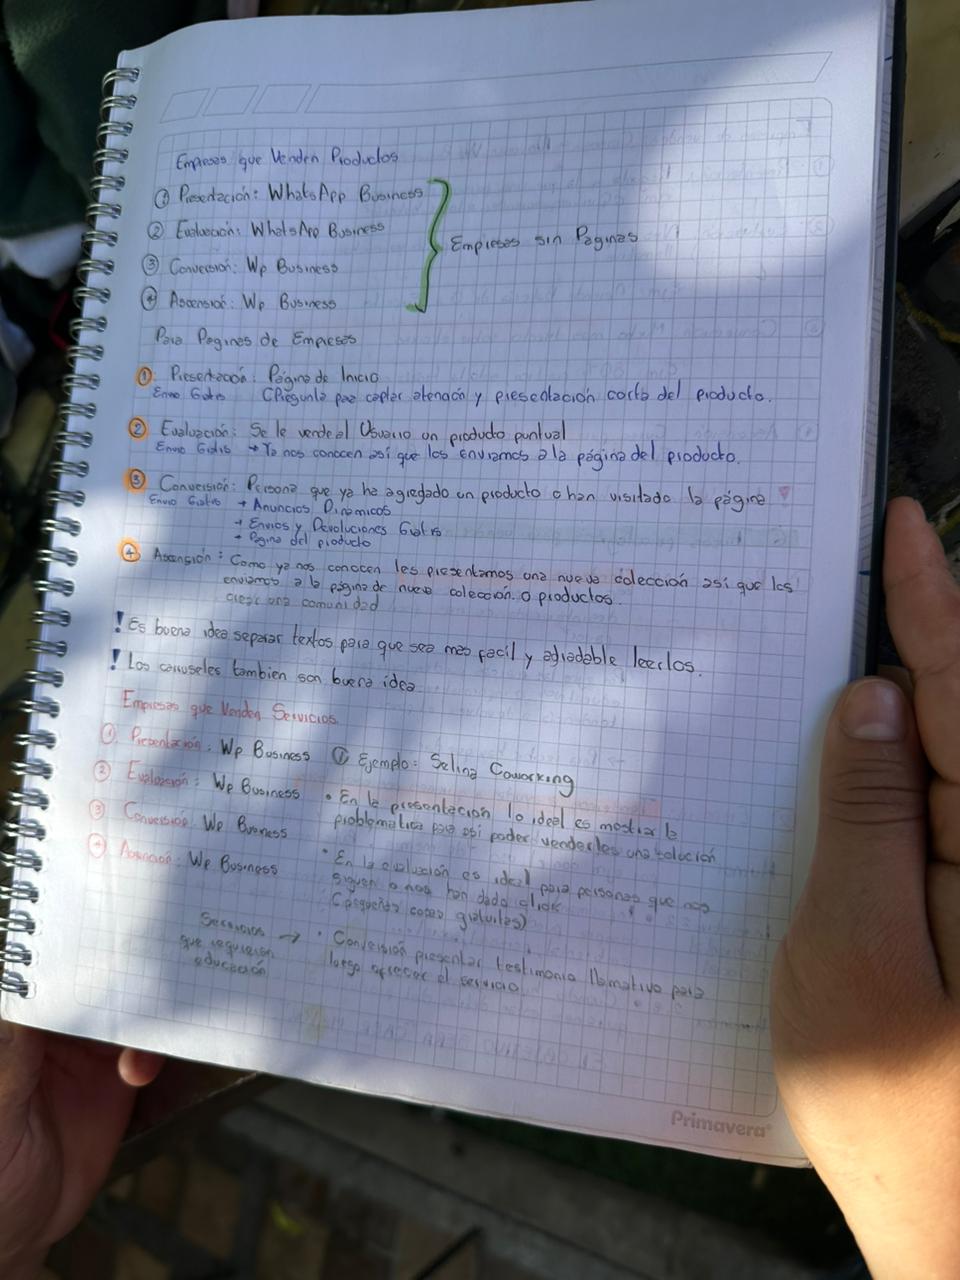 Empresas que Venden Productos
① Presentación: WhatsApp Business
② Evaluación: WhatsApp Business
③ Conversión: Wp Business
④ Ascensión: Wp Business
Empresas sin Paginas
Para Paginas de Empresas
① Presentación: Página de Inicio
Envio Gratis (Pregunta para captar atención y presentación corta del producto.
② Evaluación: Se le vende al Usuario un producto puntual
Envio Gratis → Ya nos conocen así que los enviamos a la página del producto.
③ Conversión: Persona que ya ha agregado un producto o han visitado la página !
Envio Gratis → Anuncios Dinamicos
→ Envios y Devoluciones Gratis
→ Pagina del producto
④ Ascensión: Como ya nos conocen les presentamos una nueva colección así que los
enviamos a la página de nueva colección o productos.
crear una comunidad
! Es buena idea separar textos para que sea mas facil y agradable leerlos.
! Los carruseles tambien son buena idea
Empresas que Venden Servicios
① Presentación: Wp Business
② Evaluación: Wp Business
③ Conversión: Wp Business
④ Ascension: Wp Business
① Ejemplo: Selina Coworking
• En la presentación lo ideal es mostrar la
problematica para asi poder venderles una solucion
• En la evaluación es ideal para personas que nos
siguen o nos han dado click
(pequeñas cosas gratuitas)
Servicios
que requieren
educación
→ • Conversión presentar testimonio llamativo para
luego ofrecer el servicio
Primavera